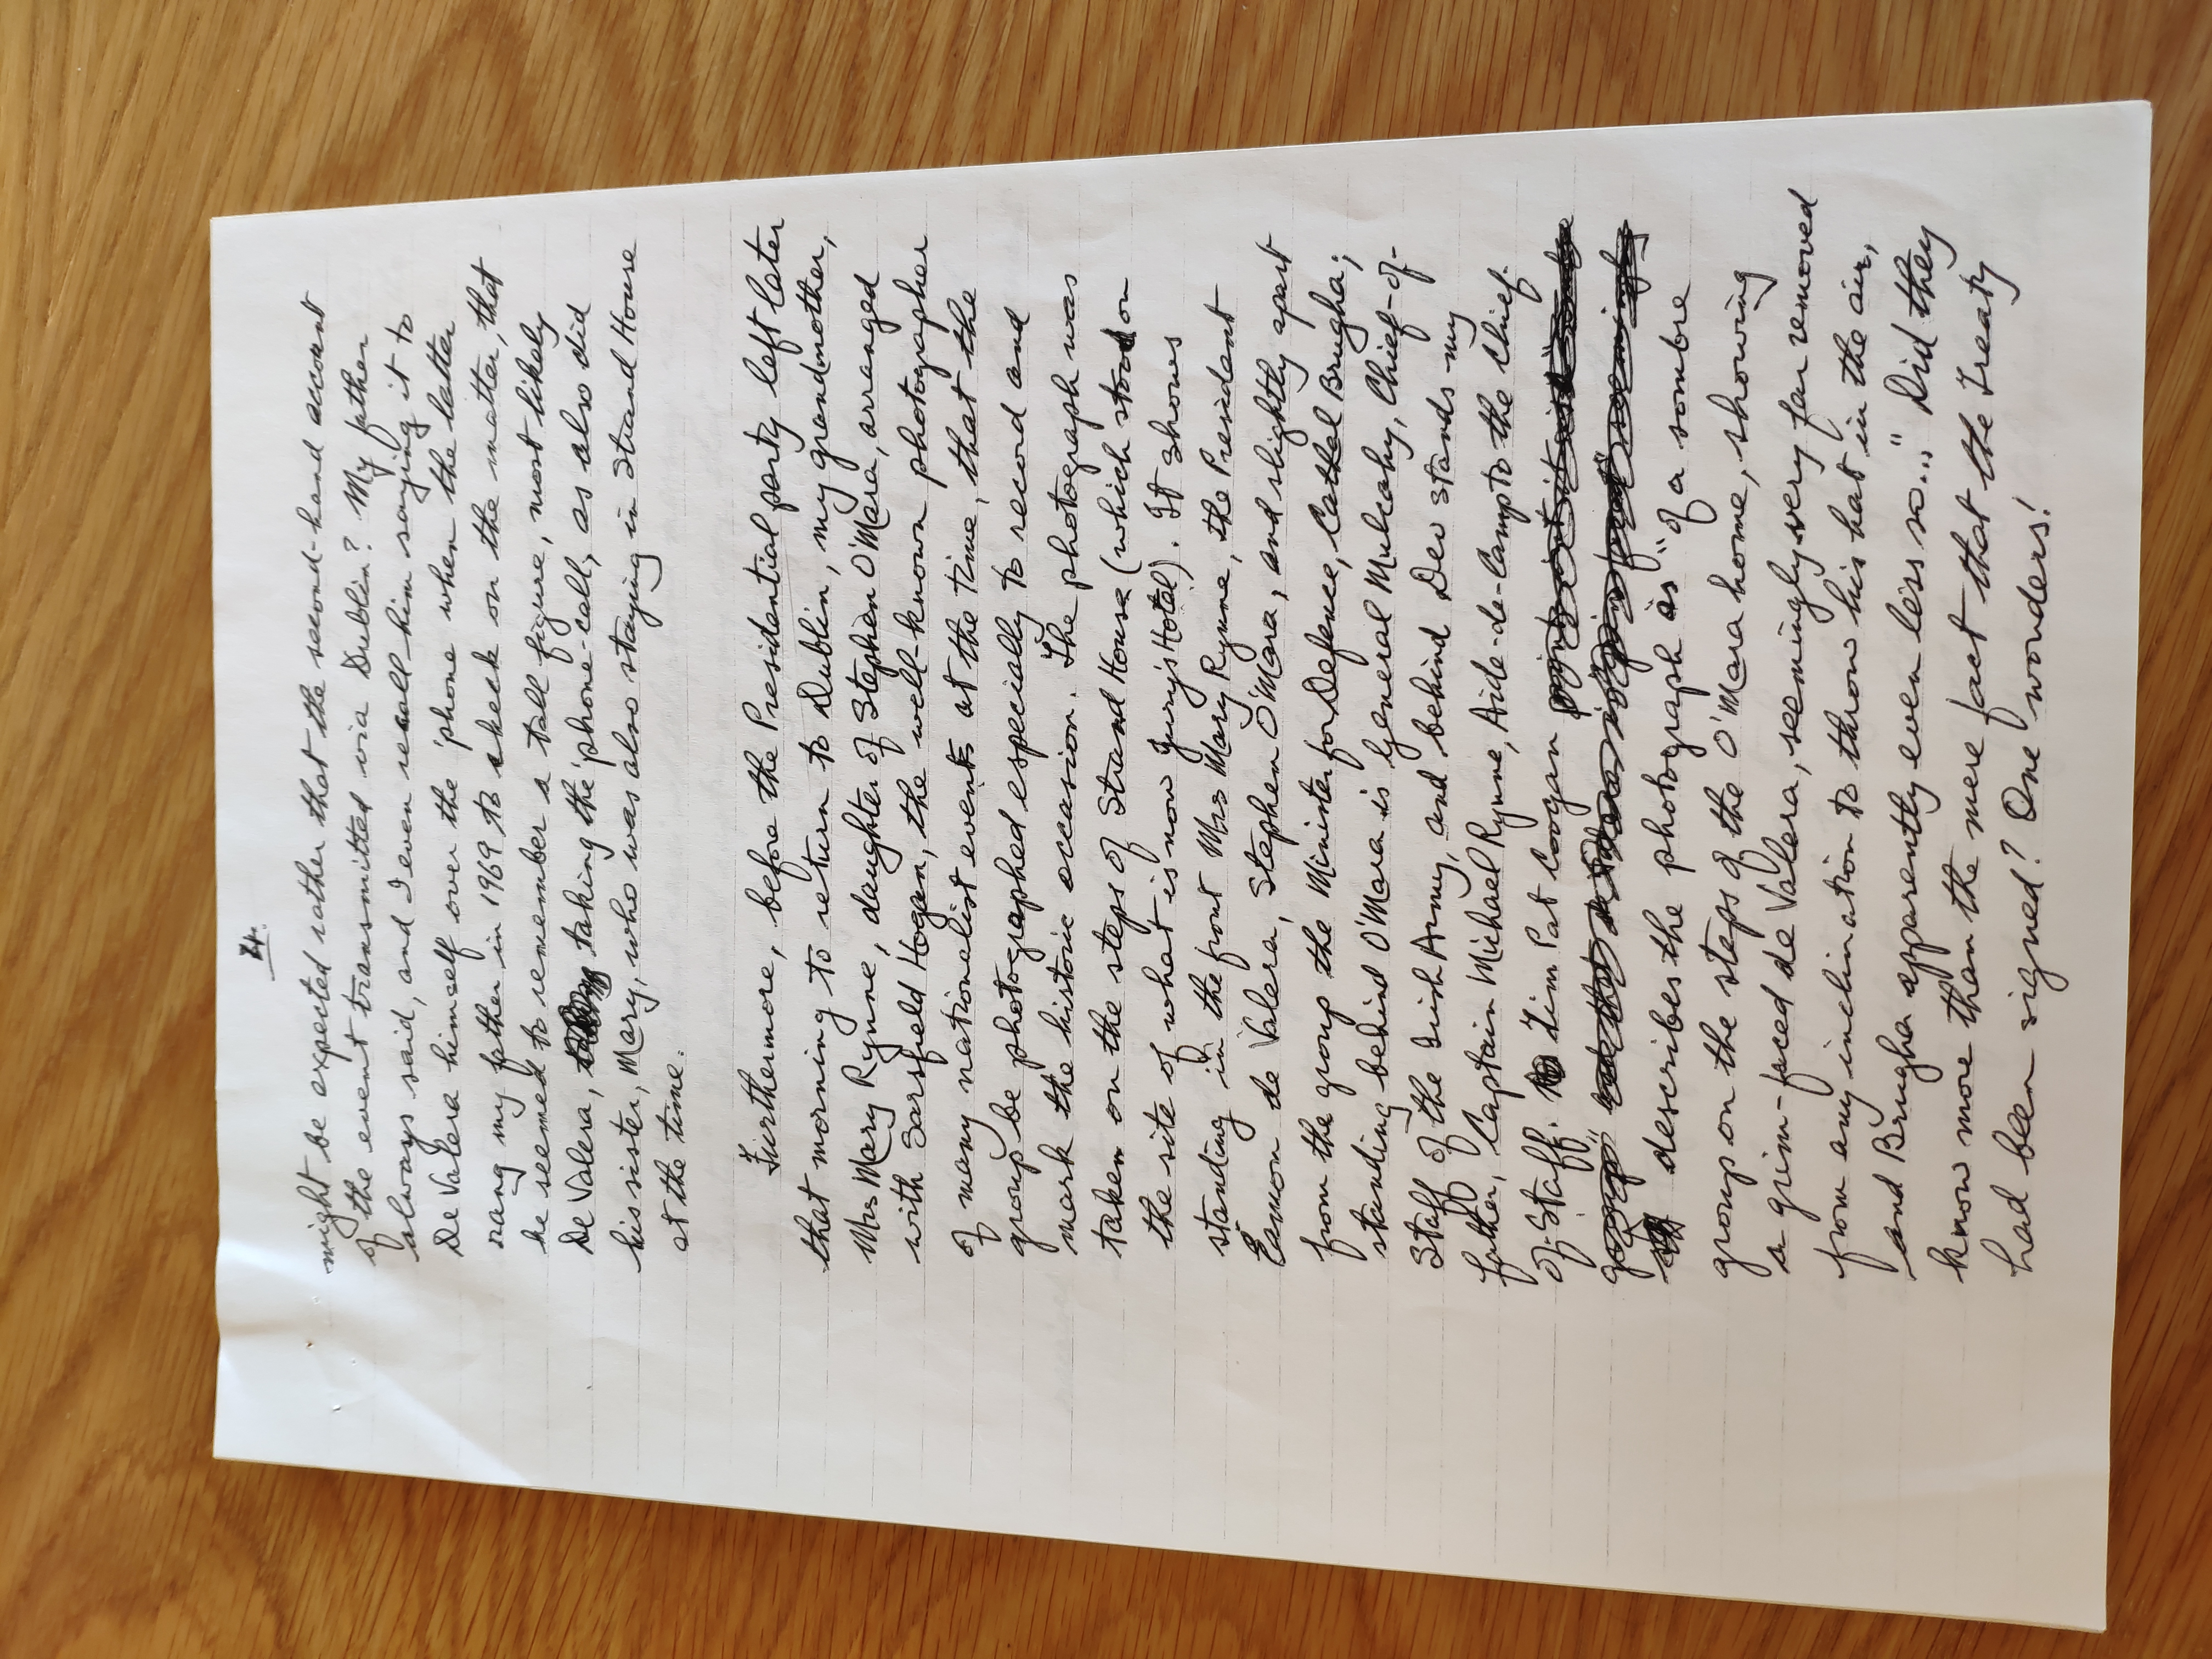 4.
might be expected rather that the second-hand account
of the event transmitted via Dublin? My father
always said, and I even recall him saying it to
De Valera himself over the 'phone when the latter
rang my father in 1969 to check on the matter, that
he seemed to remember a tall figure, most likely
De Valera, taking the 'phone-call, as also did
his sister, Mary, who was also staying in Strand House
at the time.
Furthermore, before the Presidential party left later
that morning to return to Dublin, my grandmother,
Mrs Mary Rynne, daughter of Stephen O'Mara, arranged
with Sarsfield Hogan, the well-known photographer
of many nationalist events at the time, that the
group be photographed especially to record and
mark the historic occasion. The photograph was
taken on the steps of Strand House (which stood on
the site of what is now Jury's Hotel). It shows
standing in the front Mrs Mary Rynne, the President
Eamon de Valera, Stephen O'Mara, and slightly apart
from the group the Minister for Defence, Cathal Brugha;
standing behind O'Mara is General Mulcahy, Chief-of-
Staff of the Irish Army, and behind Dev stands my
father, Captain Michael Rynne, Aide-de-Camp to the Chief-
of-Staff. Tim Pat Coogan
group"
describes the photograph as "of a sombre
group on the steps of the O'Mara home, showing
a grim-faced de Valera, seemingly very far removed
from any inclination to throw his hat in the air,
and Brugha apparently even less so..." Did they
know more than the mere fact that the Treaty
had been signed? One wonders!